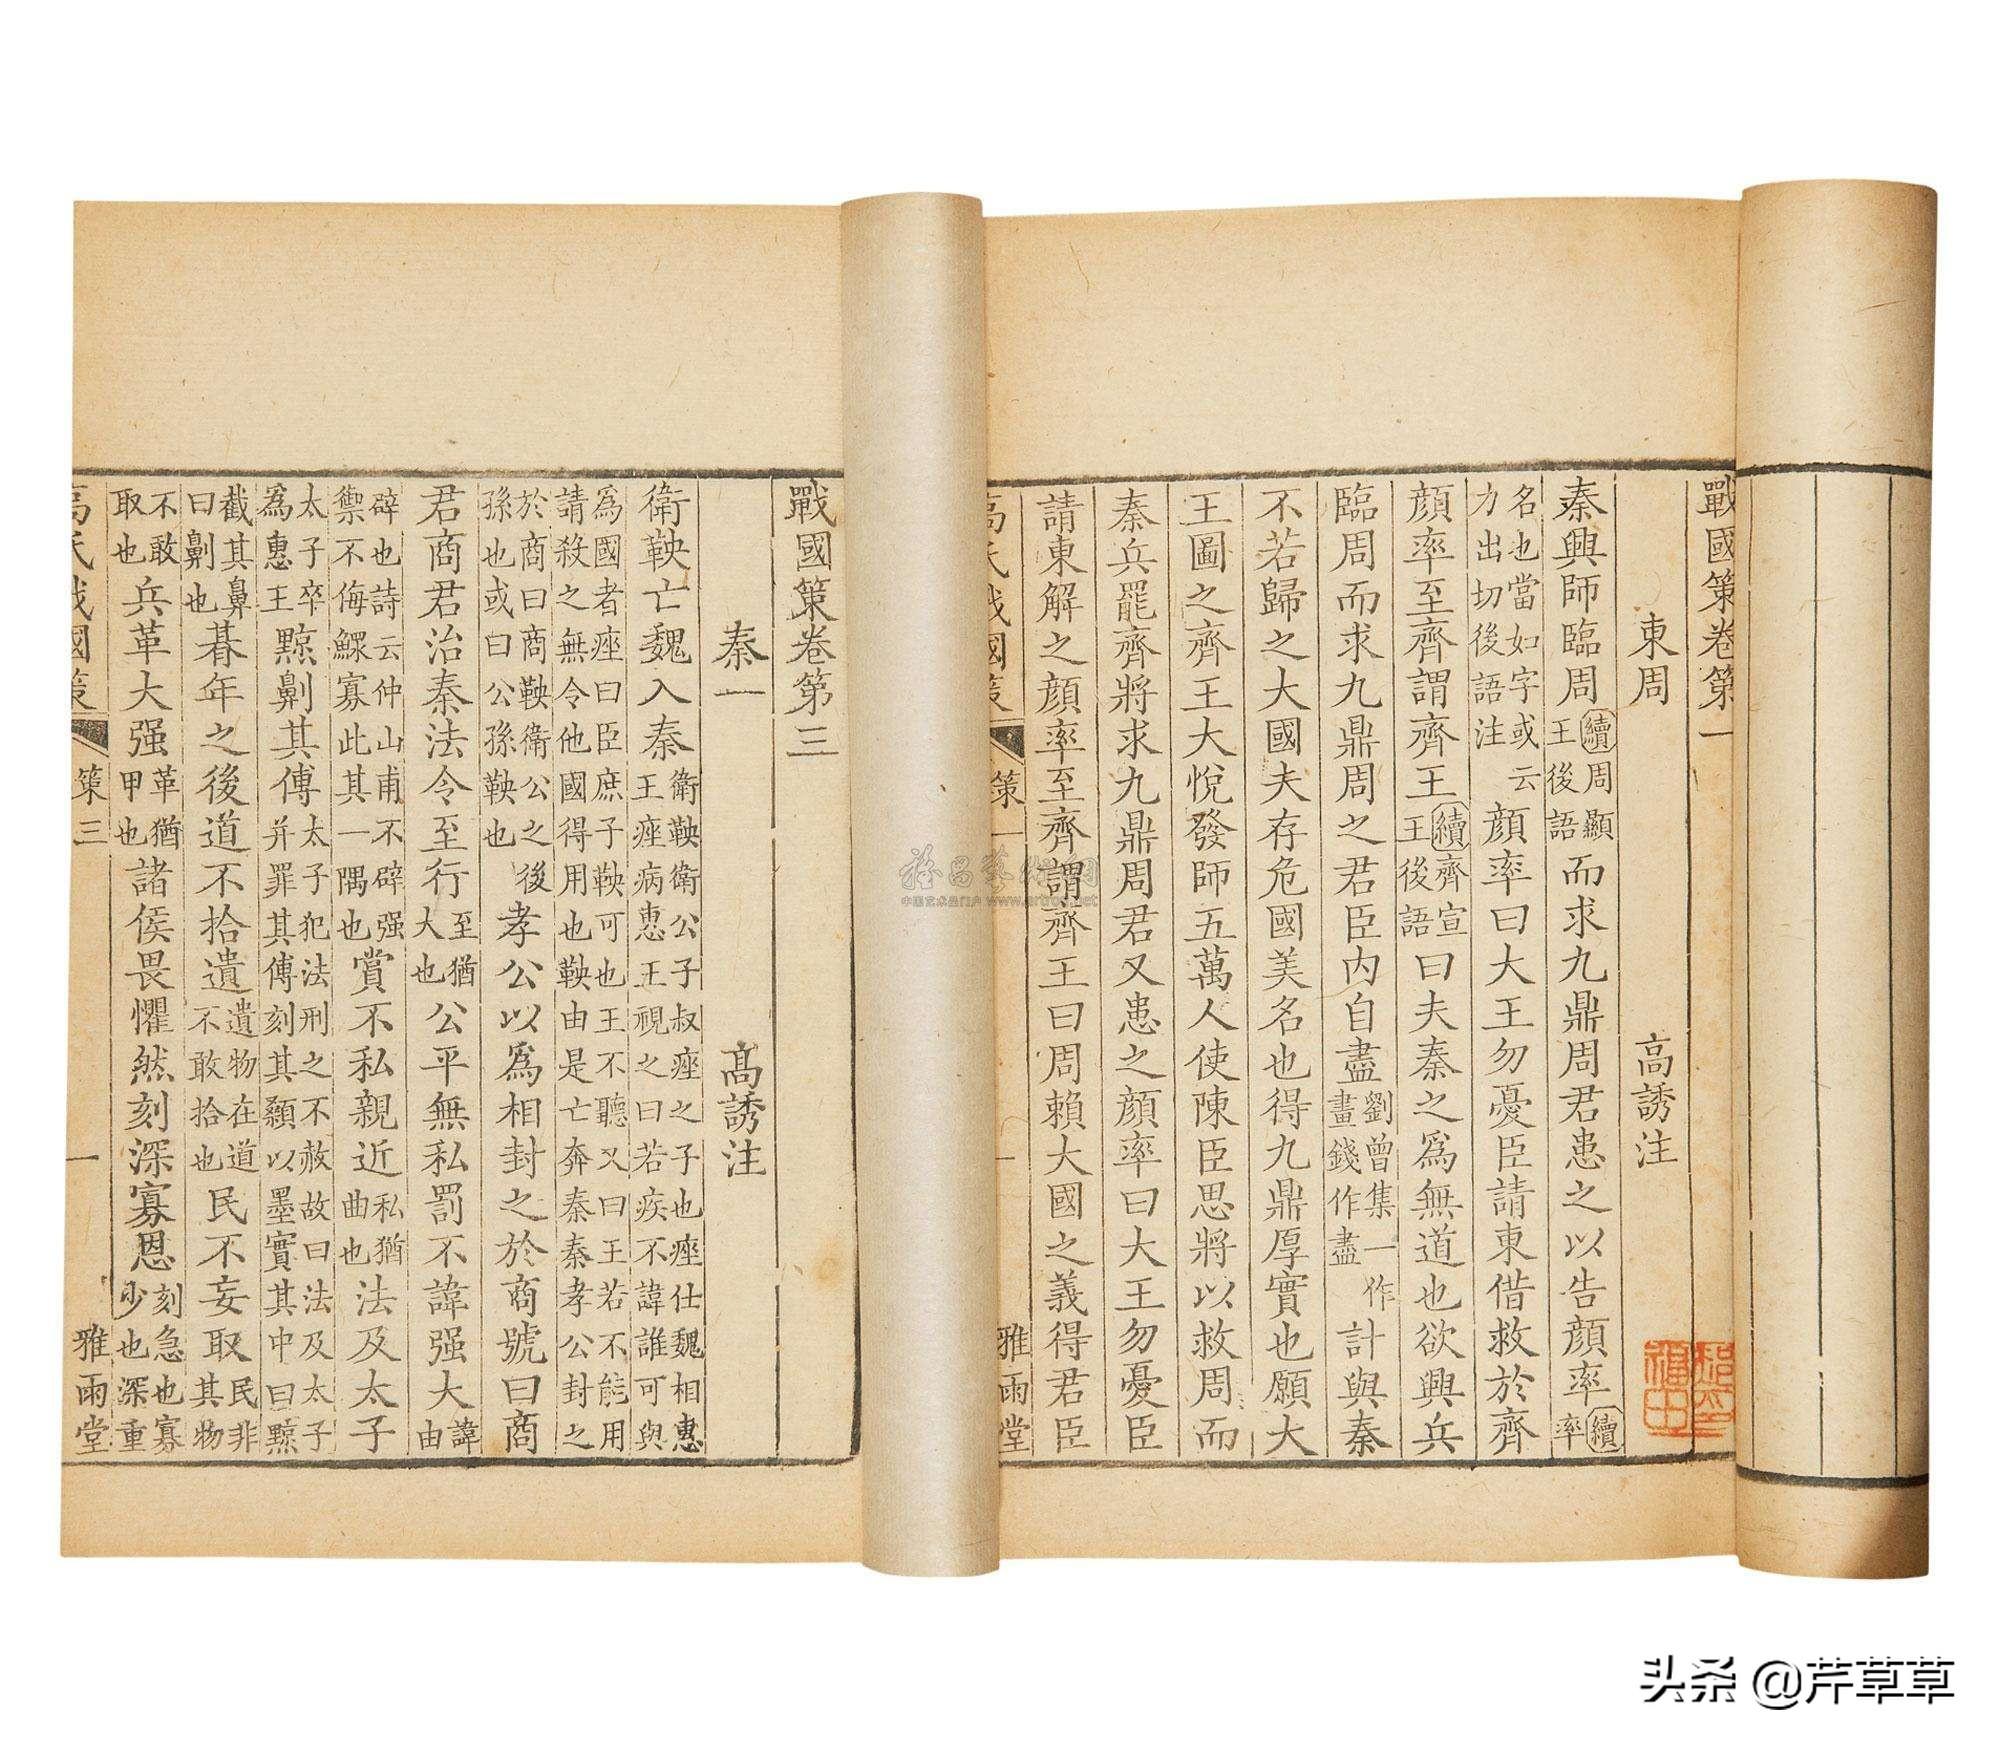 戰國策卷第一
東周 高誘注
秦興師臨周續周顯王後語而求九鼎周君患之以告顔率續率
名也當如字或云力出切後語注顔率曰大王勿憂臣請東借救於齊
顔率至齊謂齊王續齊宣王後語曰夫秦之爲無道也欲興兵
臨周而求九鼎周之君臣内自盡劉曾集一作畫錢作盡計與秦
不若歸之大國夫存危國美名也得九鼎厚實也願大
王圖之齊王大悅發師五萬人使陳臣思將以救周而
秦兵罷齊將求九鼎周君又患之顔率曰大王勿憂臣
請東解之顔率至齊謂齊王曰周賴大國之義得君臣
高氏戰國策 策一 一 雅雨堂
戰國策卷第三
秦一 高誘注
衛鞅亡魏入秦衛鞅衛公子叔痤之子也痤仕魏相惠王痤病惠王視之曰若疾不諱誰可與
爲國者痤曰臣庶子鞅可也王不聽又曰王若不能用請殺之無令他國得用也鞅由是亡奔秦秦孝公封之
於商曰商鞅衛公之後孫也或曰公孫鞅也孝公以爲相封之於商號曰商
君商君治秦法令至行至猶大也公平無私罰不諱强大諱由
辟也詩云仲山甫不辟强禦不侮鰥寡此其一隅也賞不私親近私猶曲也法及太子
太子卒爲惠王黥劓其傅太子犯法刑之不赦故曰法及太子并罪其傅刻其顙以墨實其中曰黥
截其鼻曰劓也朞年之後道不拾遺遺物在道不敢拾也民不妄取民非其物
不敢取也兵革大强革猶甲也諸侯畏懼然刻深寡恩刻急也寡少也深重
高氏戰國策 策三 一 雅雨堂
中国艺术品门户 www.artron.net
头条 @芹草草